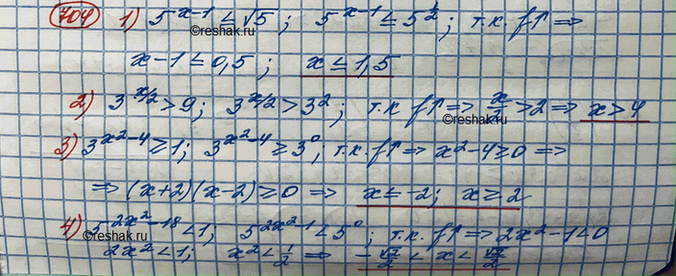 704 1) 5^(x-1) ≤ √5; 5^(x-1) ≤ 5^(1/2); т.к. f↑ ⇒
©reshak.ru
x-1 ≤ 0,5; x ≤ 1,5
2) 3^(x/2) > 9; 3^(x/2) > 3^2; т.к. f↑ ⇒ x/2 > 2 ⇒ x > 4
©reshak.ru
3) 3^(x^2-4) ≥ 1; 3^(x^2-4) ≥ 3^0; т.к. f↑ ⇒ x^2-4 ≥ 0 ⇒
⇒ (x+2)(x-2) ≥ 0 ⇒ x ≤ -2; x ≥ 2
4) 5^(2x^2-18) < 1; 5^(2x^2-1) < 5^0; т.к. f↑ ⇒ 2x^2-1 < 0
©reshak.ru
2x^2 < 1; x^2 < 1/2 ⇒ -√2/2 < x < √2/2